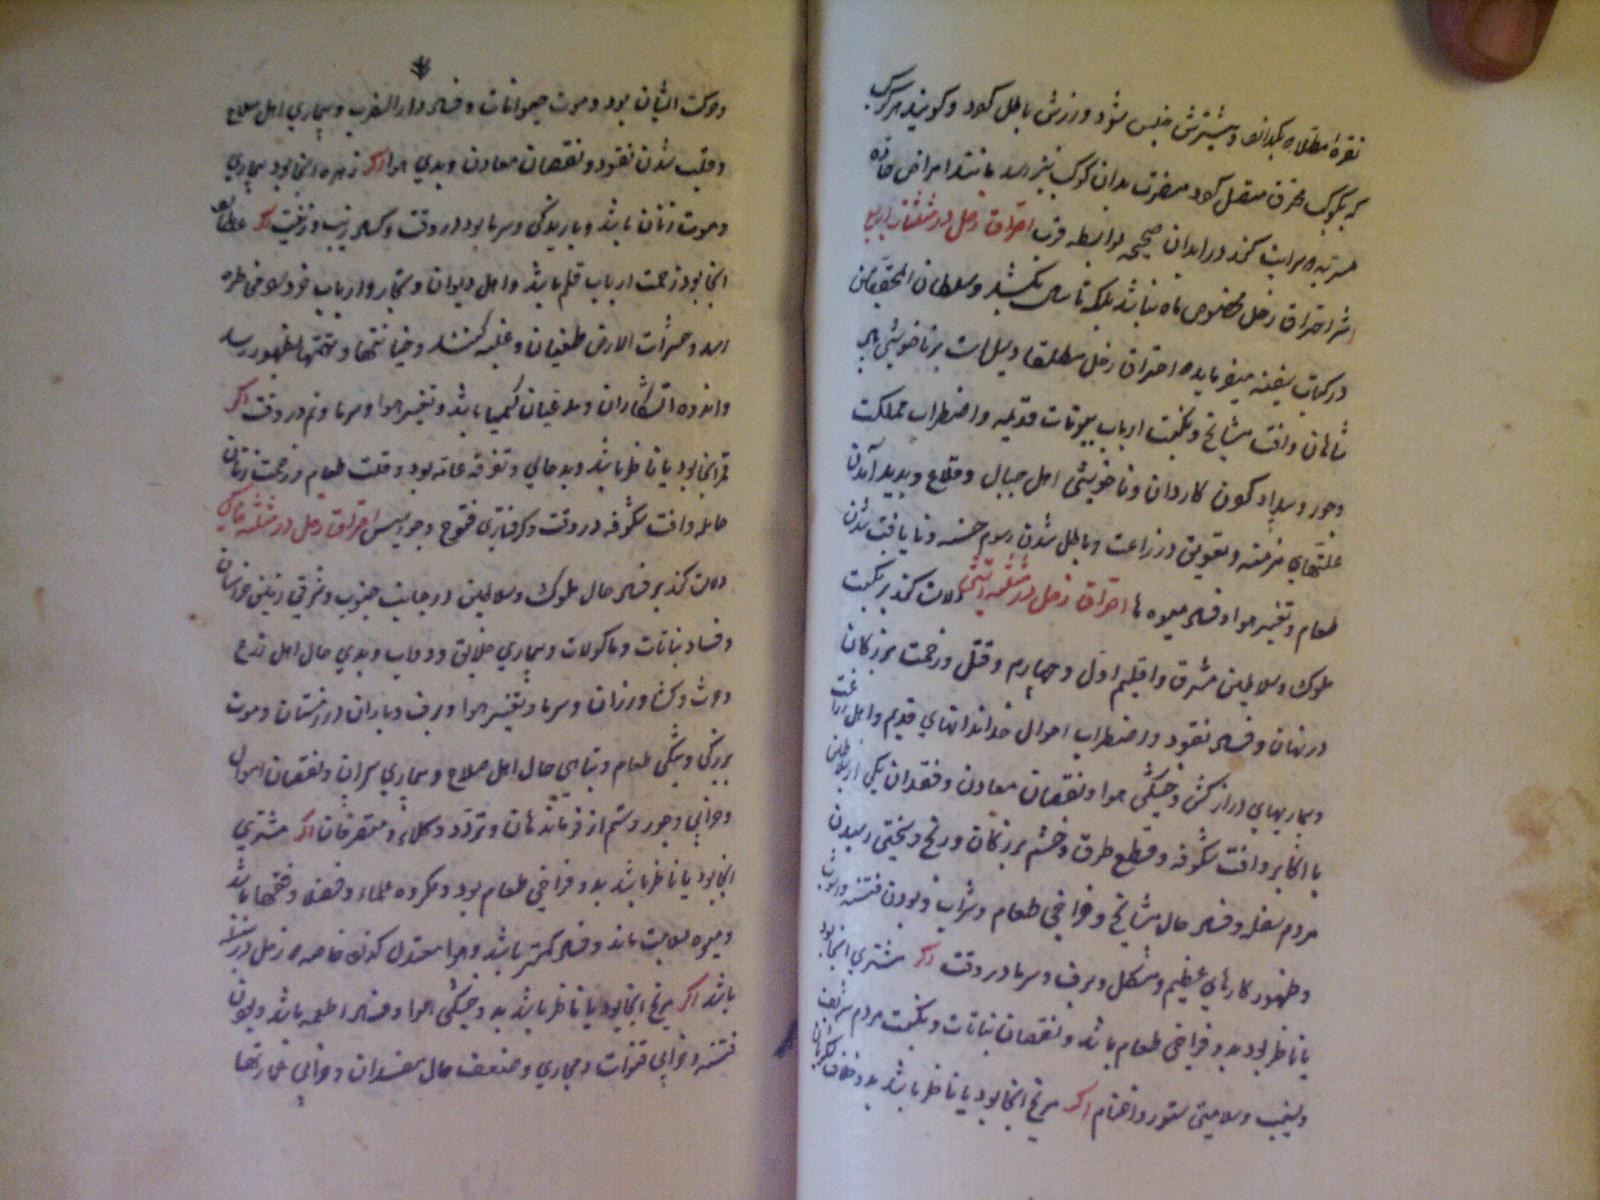 نقره مطلا بکدانه و بیشترش خلیس شود و زرش باطل کردد و کویند هر کوکب
که بکوکب محترق متصل کردد مضرت بدان کوکب نیز رسد مانند امراض حاده
سرایت کند در ابدان صحیحه بواسطه قرب احتراق زحل در مثلثات اربع
اثر احتراق زحل مخصوص ماه نباشد بلکه تا سال بکشد و سلطان المحققین
در کتاب میفرماید احتراق زحل مطلقا دلیل است بر ناخوشی
شاهان و آفت مشایخ و نکبت ارباب بیوتات قدیمه و اضطراب مملکت
و جور و بیداد کردن کاردان و ناخوشی اهل جبال و قلاع و بدید آمدن
علتهای مزمنه و تعویق در زراعت و باطل شدن رسوم حسنه و نایافت شدن
طعام و تغییر هوا و فساد میوه ها احتراق زحل در مثلثه آتشی دلالت کند بر نکبت
ملوک و سلاطین مشرق و اقلیم اول و چهارم و قتل و زحمت بزرکان
در نهان و فساد نقود و اضطراب احوال خداندانهای قدیم و اهل زراعت
و بیماریهای دراز کش و خشکی هوا و نقصان معادن و فقدان یکی از سلاطین
با اکابر و آفت شکوفه و قطع طرق و خشم بزرکان و رنج و سختی رسیدن
مردم سفله و فساد حال مشایخ و فراخی طعام و شراب و بودن فتنه و آشوب
و ظهور کارهای عظیم و مشکل و برف و سرما در وقت اکر مشتری انجا بود
یا ناظر بود بد و فراخی طعام باشد و نقصان نباتات و نکبت مردم شریف
و نقیب و سلامتی ستور و اغنام اکر مریخ انجا بود یا ناظر باشد بد و خلاف لشکریان
و حرکت ایشان بود و موت حیوانات و فساد دار الضرب و بیماری اهل سلاح
و قلب شدن نقود و نقصان معادن و بدی هوا اکر زهره انجا بود بیماری
و موت زنان باشد و بارندکی و سرما بود در وقت و کساد زیب و زینت اکر عطارد
انجا بود زحمت ارباب قلم باشد و اهل دیوان و تجار و ارباب خرد را خاطره
رسد و حشرات الارض طغیان و غلبه کنند و خیانتها و تهمتها بظهور رسد
و اندوه آتشکاران و مدعیان کیمیا باشد و تغییر هوا و سرما و نم در وقت اکر
قمر انجا بود یا ناظر باشد و بدحالی و تفرقه عامه بود و قلت طعام و زحمت زنان
حامله و آفت شکوفه در وقت و کرفتاری فتوح و جواسیس احتراق زحل در مثلثه خاکی
دلالت کند بر فساد حال ملوک و سلاطین در جانب جنوب و شرقی زمین خراسان
و فساد نباتات و ماکولات و بیماری خلایق و دواب و بدی حال اهل زرع
و حرث و کشاورزان و سرما و تغییر هوا و برف و باران در زمستان و موت
بزرکی و تنکی طعام و تباهی حال اهل صلاح و بیماری سران و نقصان اموال
و خرابی و جور و ستم از فرماندهان و تردد وکلاء و متصرفان اکر مشتری
انجا بود یا ناظر باشد بد و فراخی طعام بود و مکروه علماء و فضلا و فتحها باشد
و میوه سلامت ماند و فساد کمتر باشد و هوا معتدل کردد خاصه زحل در سنبله
باشد اکر مریخ انجا بود یا ناظر باشد بد و خشکی هوا و فساد اطعمه باشد و بودن
فتنه و خرابی قنوات و مجاری و ضعف حال مفسدان و خرابی عمارتها